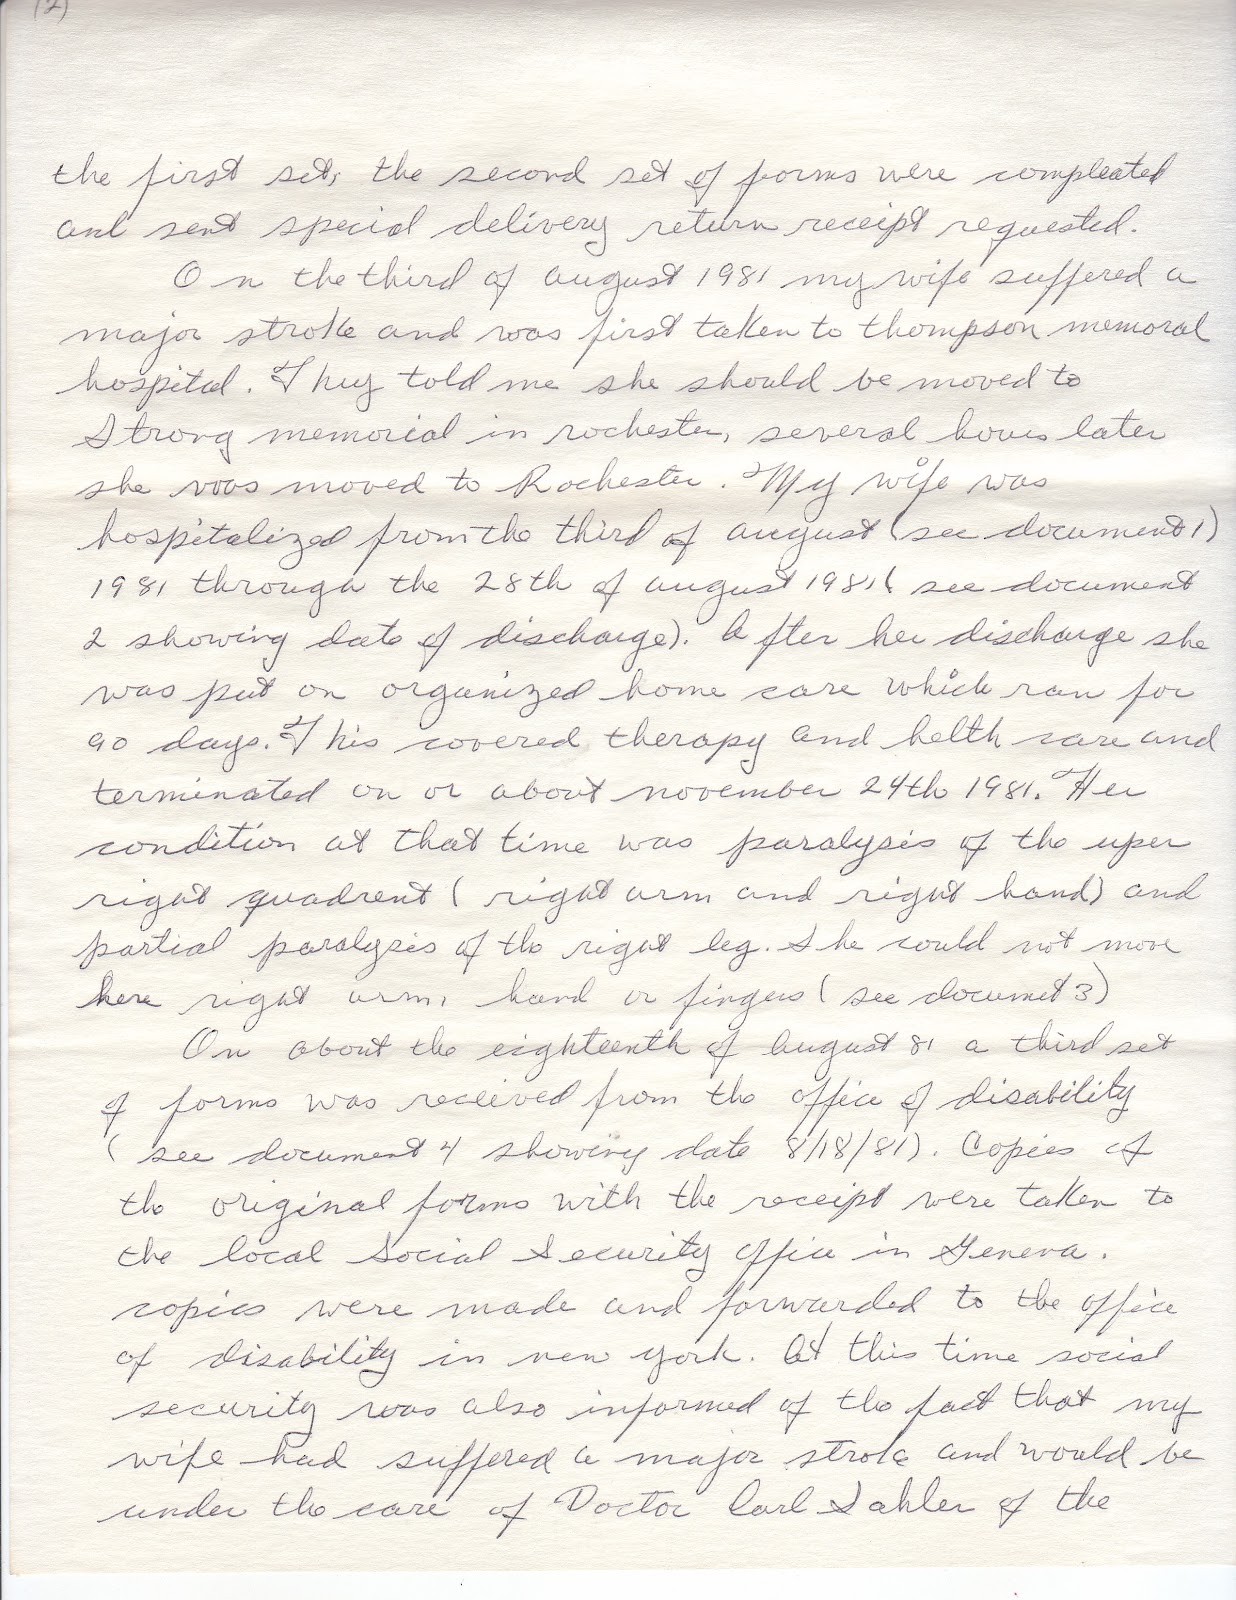 (2)
the first set, the second set of forms were compleated
and sent special delivery return receipt requested.
On the third of august 1981 my wife suffered a
major stroke and was first taken to thompson memoral
hospital. They told me she should be moved to
Strong memorial in rochester, several hours later
she was moved to Rochester. My wife was
hospitalized from the third of august (see document 1)
1981 through the 28th of august 1981 (see document
2 showing date of discharge). After her discharge she
was put on organized home care which ran for
90 days. This covered therapy and helth care and
terminated on or about november 24th 1981. Her
condition at that time was paralysis of the uper
right quadrent (right arm and right hand) and
partial paralysis of the right leg. She could not move
here right arm, hand or fingers (see documet 3)
On about the eighteenth of august 81 a third set
of forms was received from the office of disability
(see document 4 showing date 8/18/81). Copies of
the original forms with the receipt were taken to
the local Social Security office in Geneva.
copies were made and forwarded to the office
of disability in new york. At this time social
security was also informed of the fact that my
wife had suffered a major stroke and would be
under the care of Doctor Carl Sahler of the